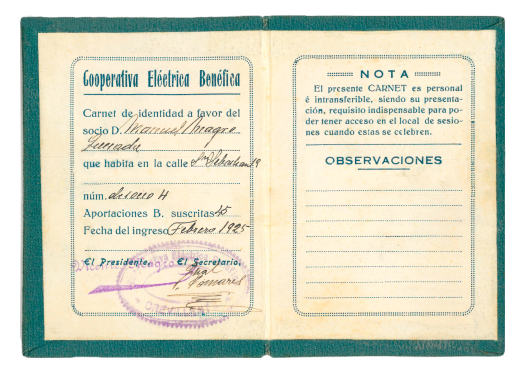 Cooperativa Eléctrica Benéfica
Carnet de identidad a favor del
socio D. Manuel Magro
que habita en la calle Sn Sebastian 19
núm.
Aportaciones B. suscritas 15
Fecha del ingreso Febrero 1925
El Presidente. El Secretario.
NOTA
El presente CARNET es personal
é intransferible, siendo su presenta-
ción, requisito indispensable para po-
der tener acceso en el local de sesio-
nes cuando estas se celebren.
OBSERVACIONES